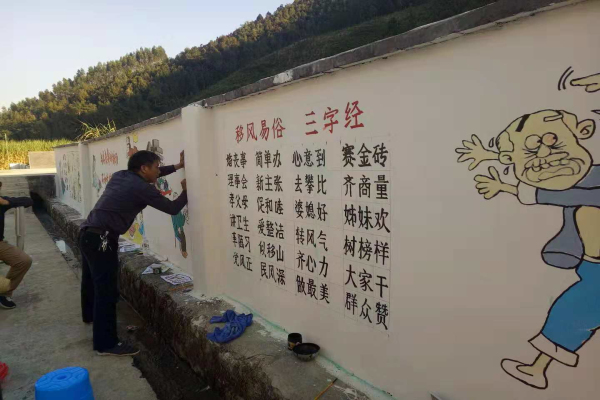 移风易俗 三字经
婚丧事 简单办 心意到 赛金砖
理事会 新主张 去攀比 齐商量
孝父母 促和睦 婆媳好 姊妹欢
讲卫生 爱整洁 转风气 树榜样
革陋习 似移山 齐心力 大家干
党风正 民风淳 做最美 群众赞